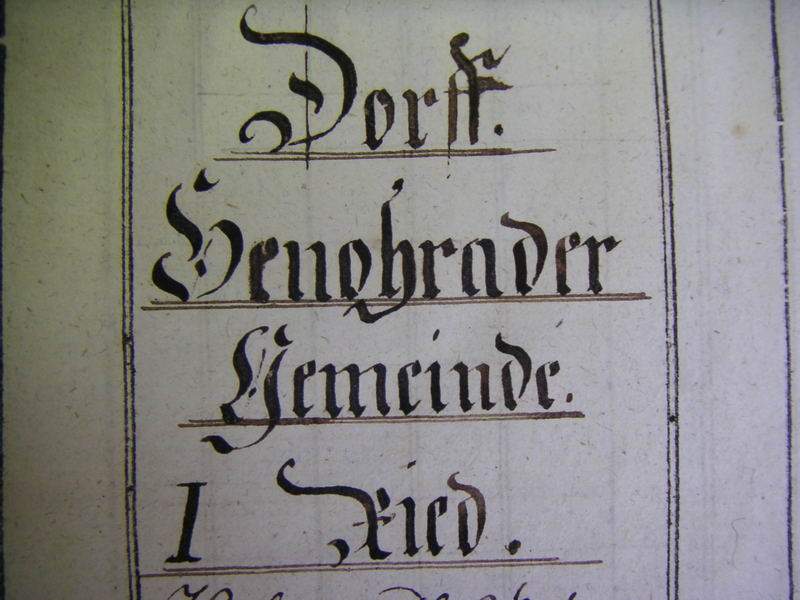 Dorff.
Henghrader
Gemeinde.
I Ried.